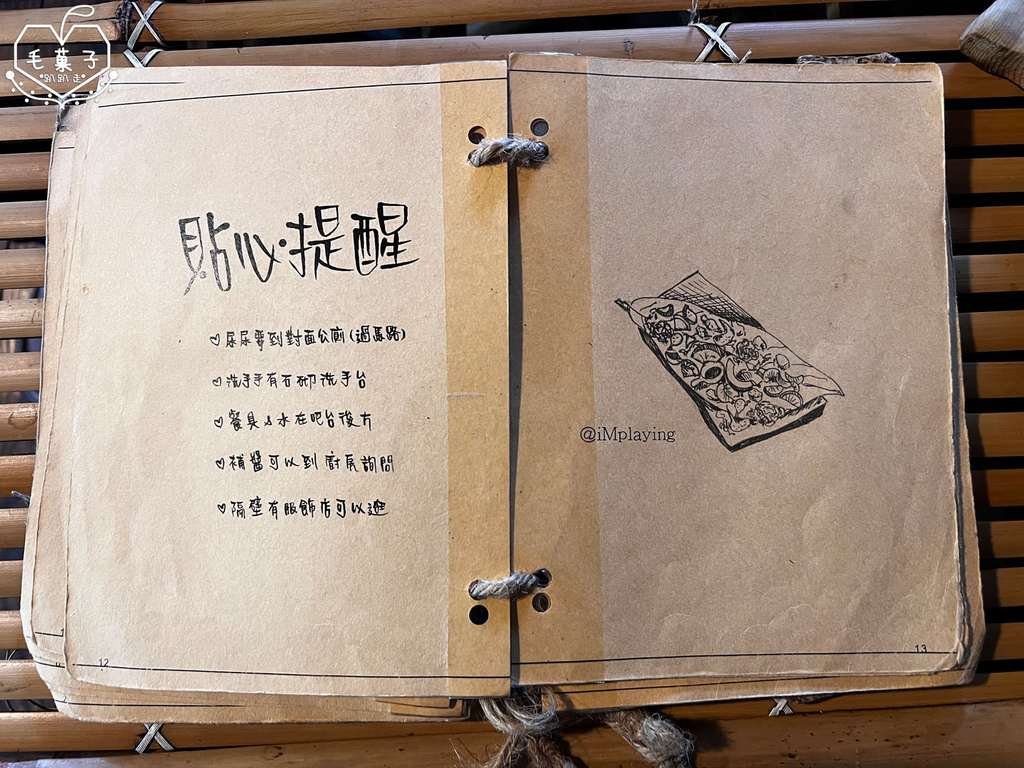 毛菓子
趴趴走
貼心·提醒
♡尿尿要到對面公廁(過馬路)
♡洗手手有石砌洗手台
♡餐具&水在吧台後方
♡補醬可以到廚房詢問
♡隔壁有服飾店可以逛
@iMplaying
12
13